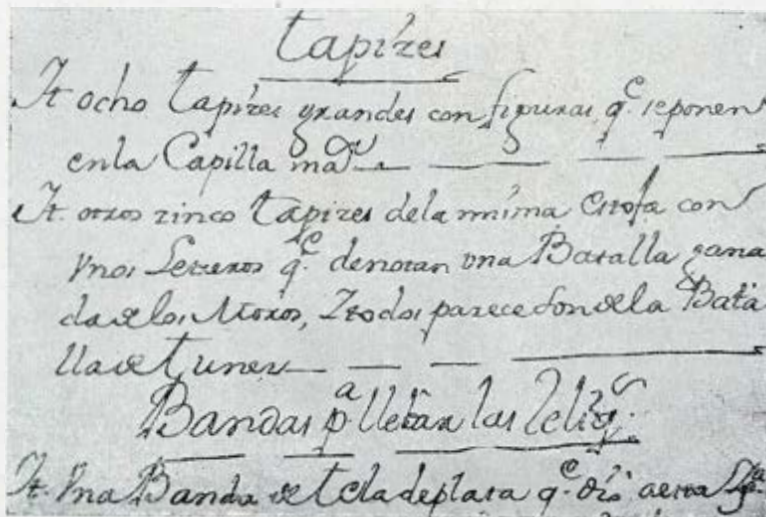 Tapizes
It ocho Tapizes grandes con figuras, q.e se ponen
en la Capilla ma.or
It. otros zinco Tapizes dela misma Estofa con
vnos Letreros q.e denotan vna Batalla gana
da de los Moros, Ztodos parece son de la Bata
lla de Tunez
Bandas p.a llebar las Reliq.s
It. Vna Banda de tela de plata q.e dió aesta Ig.a